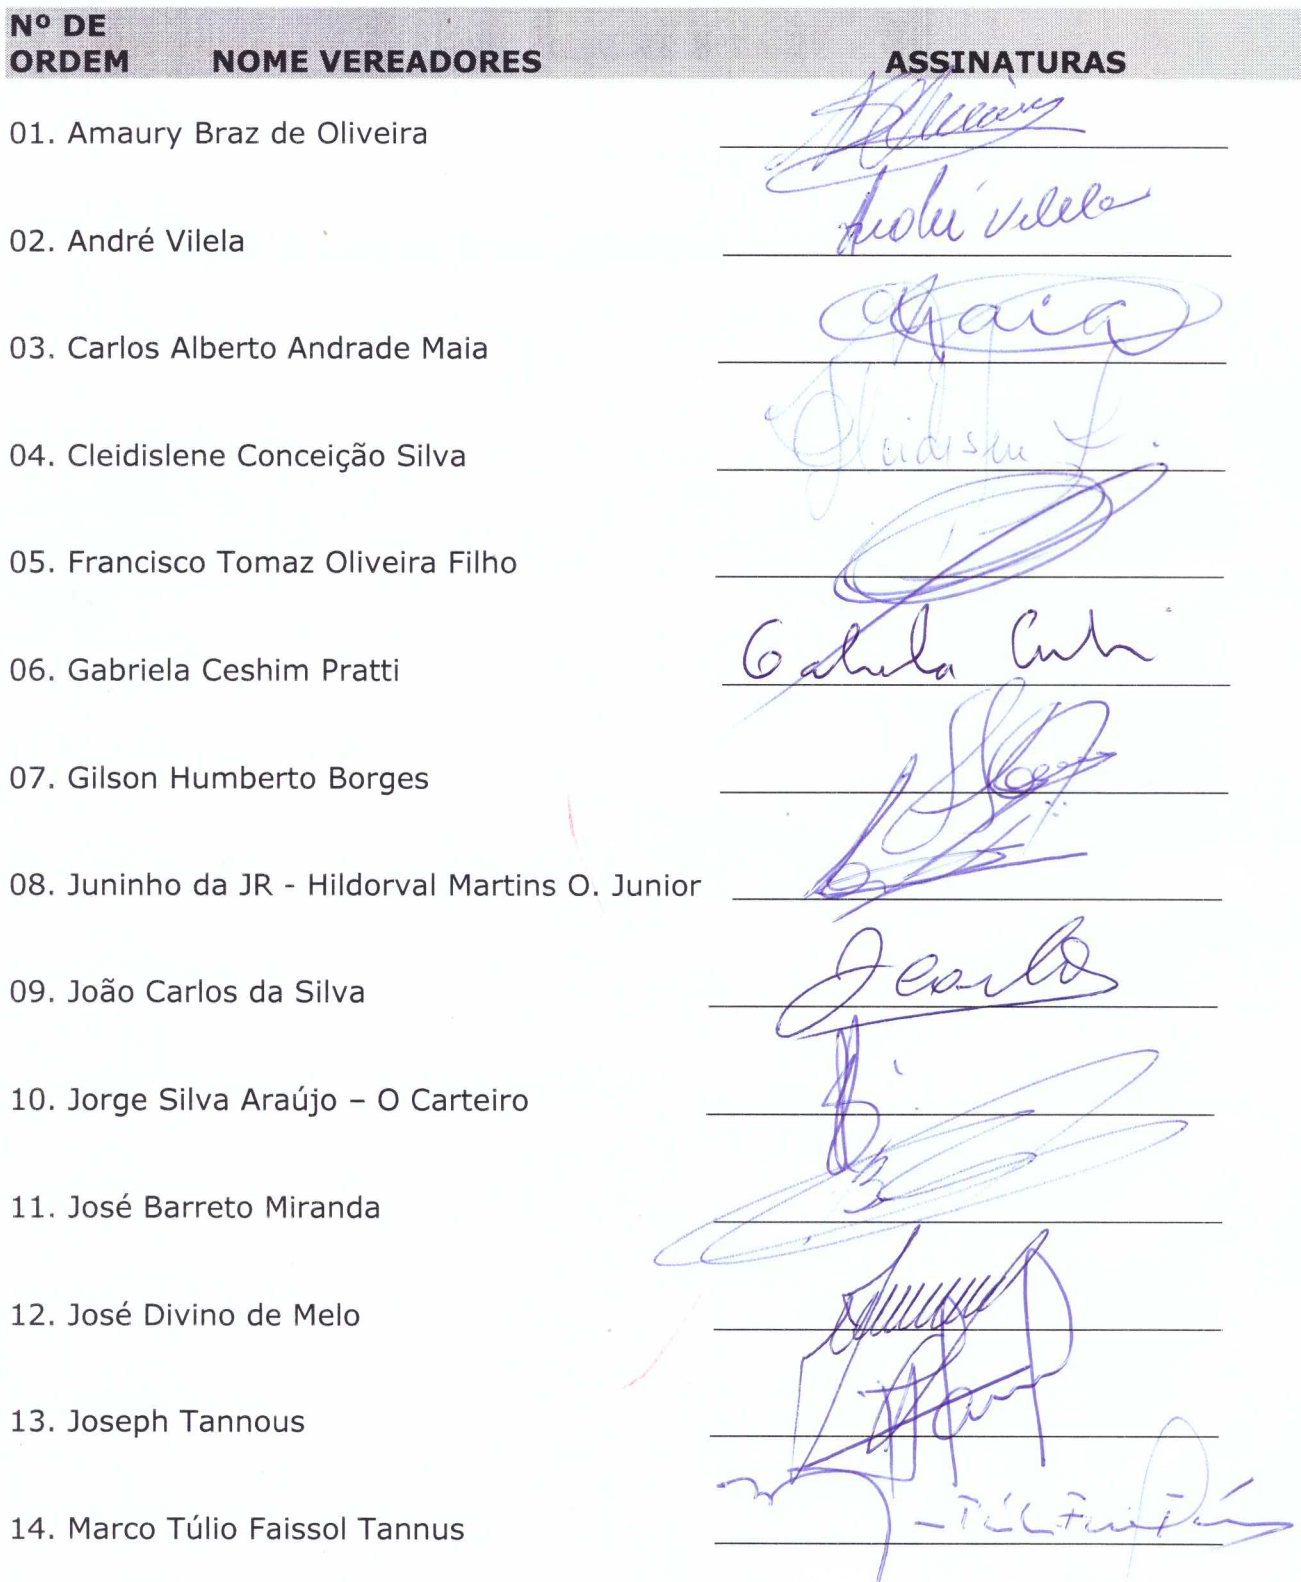 Nº DE
ORDEM NOME VEREADORES ASSINATURAS
01. Amaury Braz de Oliveira
02. André Vilela André Vilela
03. Carlos Alberto Andrade Maia Maia
04. Cleidislene Conceição Silva
05. Francisco Tomaz Oliveira Filho
06. Gabriela Ceshim Pratti Gabriela
07. Gilson Humberto Borges
08. Juninho da JR - Hildorval Martins O. Junior
09. João Carlos da Silva JCarlos
10. Jorge Silva Araújo – O Carteiro
11. José Barreto Miranda
12. José Divino de Melo
13. Joseph Tannous
14. Marco Túlio Faissol Tannus